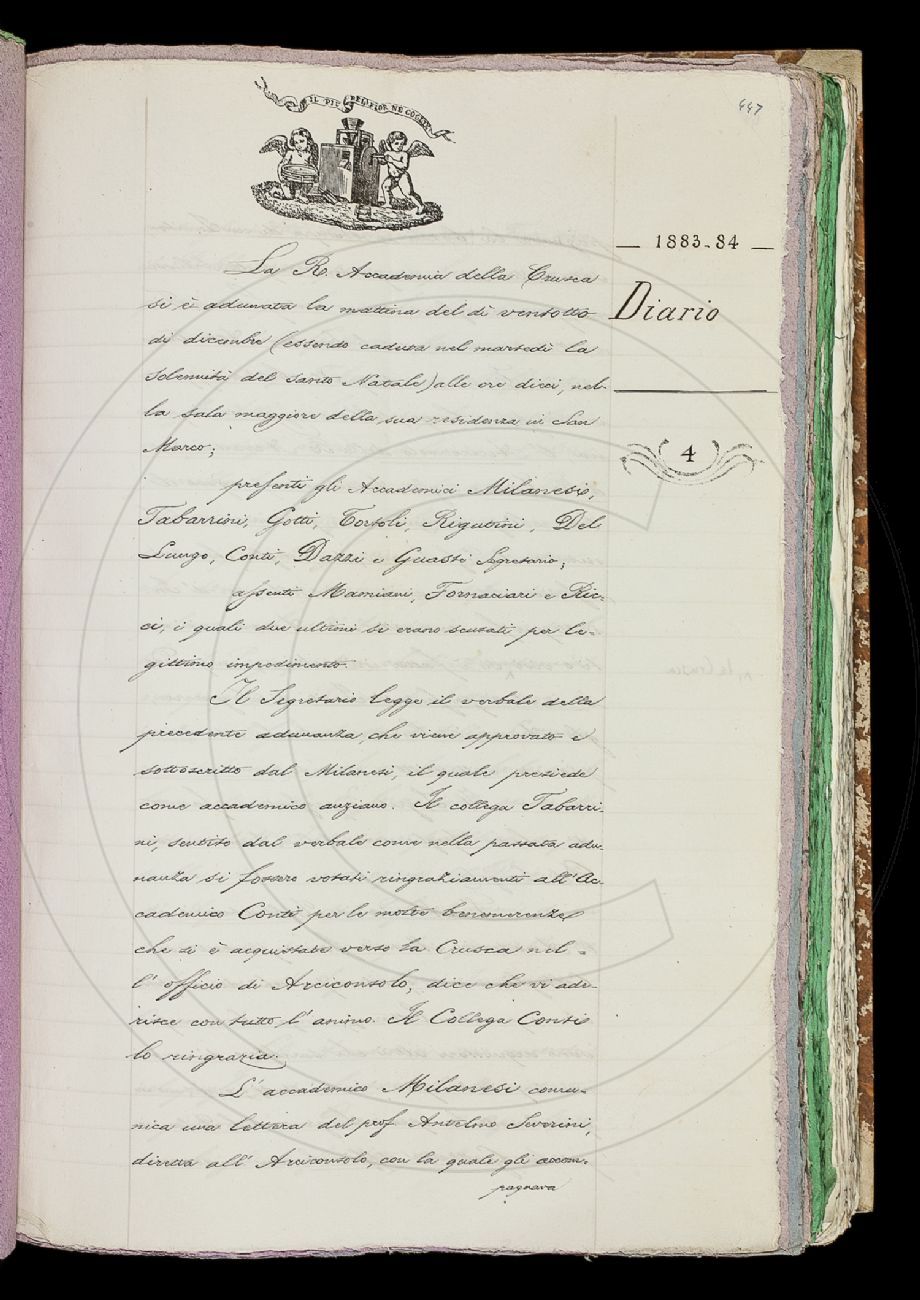 IL PIÙ BEL FIOR NE COGLIE
447
— 1883-84 —
Diario
4
La R. Accademia della Crusca
si è adunata la mattina del dì ventotto
di dicembre (essendo caduta nel martedì la
solennità del santo Natale) alle ore dieci, nel-
la sala maggiore della sua residenza in San
Marco;
presenti gli Accademici Milanesi,
Tabarrini, Gotti, Tortoli, Rigutini, Del
Lungo, Conti, Dazzi e Guasti Segretario;
assenti Mamiani, Fornaciari e Ric-
ci, i quali due ultimi si erano scusati per le-
gittimo impedimento.
Il Segretario legge il verbale della
precedente adunanza, che viene approvato e
sottoscritto dal Milanesi, il quale presiede
come accademico anziano. Il collega Tabarri-
ni, sentito dal verbale come nella passata adu-
nanza si fossero votati ringraziamenti all'Ac-
cademico Conti per le molte benemerenze
che si è acquistate verso la Crusca nel-
l'officio di Arciconsolo, dice che vi ade-
risce con tutto l'animo. Il Collega Conti
lo ringrazia.
L'accademico Milanesi comu-
nica una lettera del prof. Antelmo Severini,
diretta all'Arciconsolo, con la quale gli accom-
pagnava